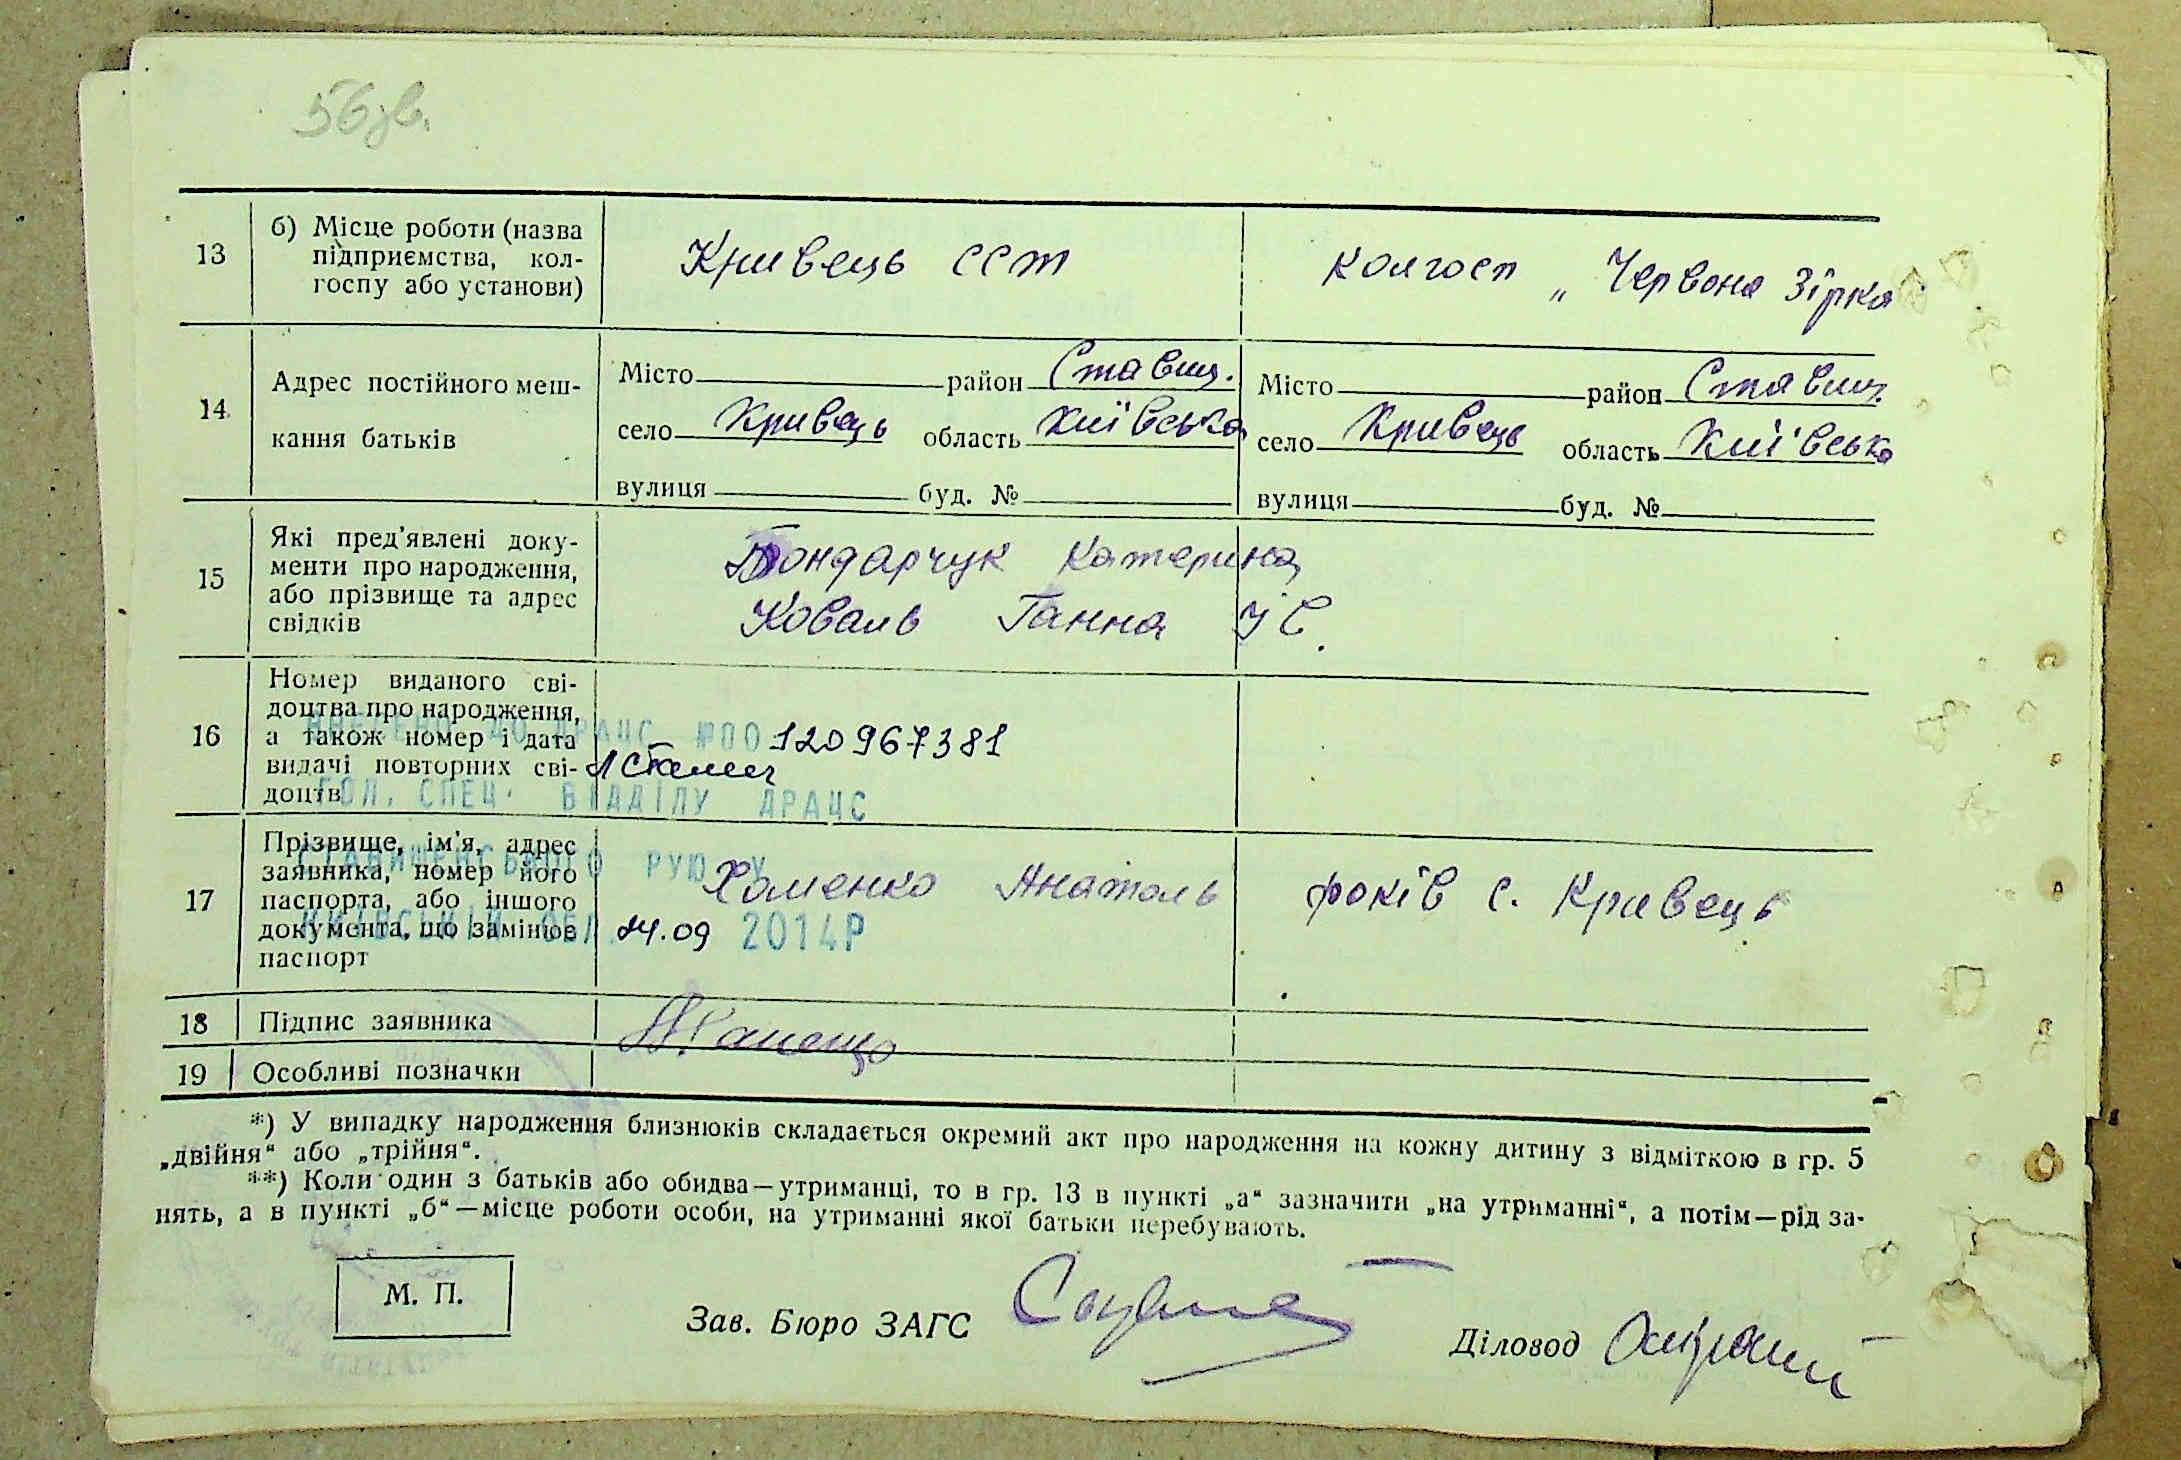 56 зв.
13
б) Місце роботи (назва
підприємства, кол-
госпу або установи)
Кривець ССТ
колгосп „ Червона Зірка
14
Адрес постійного меш-
кання батьків
Місто район Ставищ.
село Кривець область Київська
вулиця буд. №
Місто район Ставищ.
село Кривець область Київська
вулиця буд. №
15
Які пред'явлені доку-
менти про народження,
або прізвище та адрес
свідків
Бондарчук Катерина
Коваль Ганна
16
Номер виданого сві-
доцтва про народження,
а також номер і дата
видачі повторних сві-
доцтв
ВНЕСЕНО ДО ДРАЦС №00120967381
ГОЛ. СПЕЦ. ВІДДІЛУ ДРАЦС
СТАВИЩЕНСЬКОГО РУЮ У
КИЇВСЬКІЙ ОБЛ. 14.09 2014Р
17
Прізвище, ім'я, адрес
заявника, номер його
паспорта, або іншого
документа, що замінює
паспорт
Хоменко Анатоль
років с. Кривець
18
Підпис заявника
19
Особливі позначки
*) У випадку народження близнюків складається окремий акт про народження на кожну дитину з відміткою в гр. 5
„двійня“ або „трійня“.
**) Коли один з батьків або обидва—утриманці, то в гр. 13 в пункті „а“ зазначити „на утриманні“, а потім—рід за-
нять, а в пункті „б“—місце роботи особи, на утриманні якої батьки перебувають.
М. П.
Зав. Бюро ЗАГС
Діловод